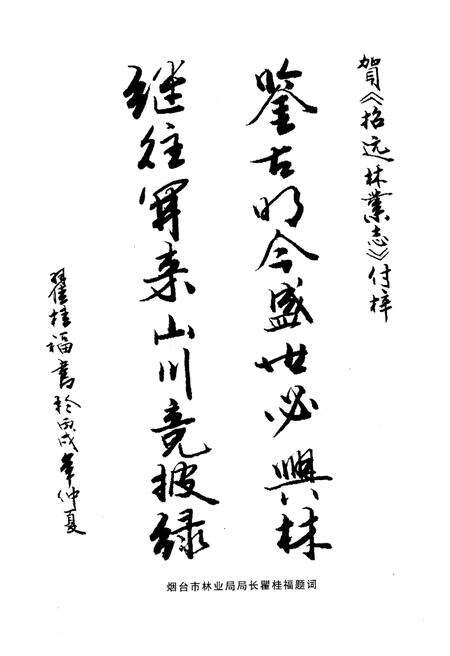 贺《招远林业志》付梓
鉴古明今盛世必興林
继往开来山川竞披绿
瞿桂福書於丙戌年仲夏
烟台市林业局局长瞿桂福题词